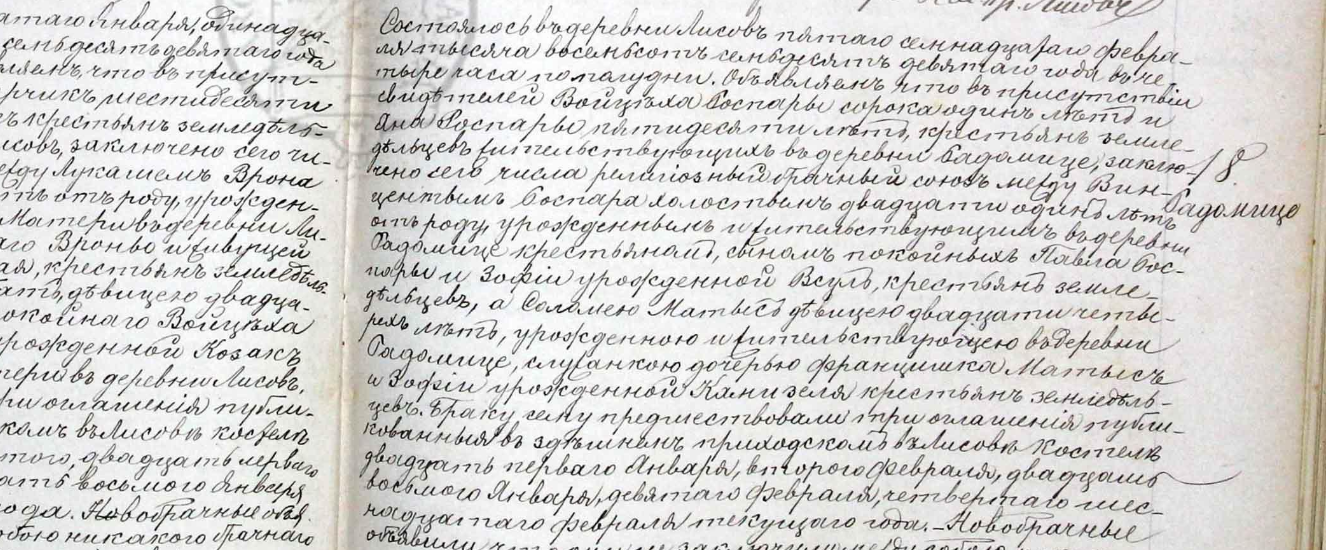 атаго Января, одинадца-
семьдесятъ девятаго года
вляемъ, что въ присут-
рчикъ шестидесяти
ъ крестьянъ земледѣль-
исовъ, заключено сего чи-
ежду Лукашемъ Врона
тъ отъ роду, урожден-
Матери въ деревни Ли-
аго Вроны и живущей
ая, крестьянъ земледѣль-
атъ, дѣвицею двадца-
окойнаго Войцѣха
рожденной Козакъ
тери въ деревни Лисовъ,
ри оглашенія публи-
комъ въ Лисовѣ костелѣ
того, двадцать перваго
ать восьмого Января
ода. Новобрачные объя-
обою никакого брачнаго
Состоялось въ деревни Лисовъ пятаго семнадцатаго Февра-
ля тысяча восемьсотъ семьдесятъ девятаго года въ че-
тыре часа по полудни. Объявляемъ что въ присутствіи
свидѣтелей Войцѣха Госпары сорока одинъ лѣтъ и
Яна Госпары пятидесяти лѣтъ, крестьянъ земле-
дѣльцевъ жительствующихъ въ деревни Гадомице, заклю-
чено сего числа религіозный брачный союзъ между Вин-
центымъ Госпара холостымъ двадцати одинъ лѣтъ
отъ роду, урожденнымъ и жительствующимъ въ деревни
Гадомице крестьяномъ, сыномъ покойныхъ Павла Гос-
пары и Зофіи урожденной Всулъ, крестьянъ земле-
дѣльцевъ, а Саломею Матысъ дѣвицею двадцати четы-
рехъ лѣтъ, урожденною и жительствующею въ деревни
Гадомице, служанкою дочерью Францишка Матысъ
и Зофіи урожденной Канизеля крестьянъ земледѣль-
цевъ. Браку сему предшествовали три оглашенія публи-
кованныя въ здѣшнемъ приходскомъ въ Лисовѣ Костелѣ
двадцать перваго Января, второго Февраля, двадцать
восьмого Января, девятаго Февраля, четвертаго шес-
надцатаго Февраля текущаго года. — Новобрачные
объявили что они не заключили между собою
18.
Гадомице